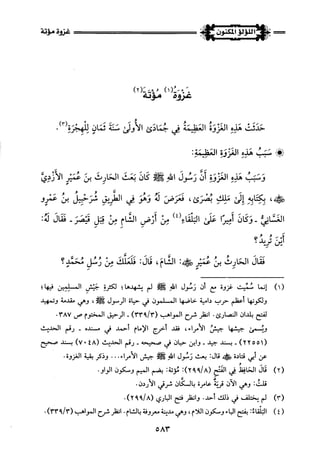 غزوة مؤتة
اللؤلؤ المكنون
غَزْوَةُ(١) مُؤْتَةَ(٢)
حَدَثَتْ هَذِهِ الغَزْوَةُ العَظِيمَةُ فِي جُمَادَى الأُولَى سَنَةَ ثَمَانٍ لِلْهِجْرَةِ(٣).
سَبَبُ هَذِهِ الغَزْوَةِ العَظِيمَةِ:
وَسَبَبُ هَذِهِ الغَزْوَةِ أَنَّ رَسُولَ اللهِ ﷺ كَانَ بَعَثَ الحَارِثَ بنَ عُمَيْرٍ الأَزْدِيَّ
ﷺ، بِكِتَابِهِ إِلَى مَلِكِ بُصْرَى، فَعَرَضَ لَهُ وَهُوَ فِي الطَّرِيقِ شُرَحْبِيلُ بنُ عَمْرٍو
الغَسَّانِيُّ ـ وَكَانَ أَمِيرًا عَلَى البَلْقَاءِ(٤) مِنْ أَرْضِ الشَّامِ مِنْ قِبَلِ قَيْصَرَ ـ فَقَالَ لَهُ:
أَيْنَ تُرِيدُ؟
فَقَالَ الحَارِثُ بنُ عُمَيْرٍ: الشَّامَ، قَالَ: فَلَعَلَّكَ مِنْ رُسُلِ مُحَمَّدٍ؟
(١) إنما سُمِّيت غزوة مع أن رسُول الله ﷺ لم يشهدها؛ لكثرة جَيْش المسلِمين فيها؛
ولكونها أعظم حرب دامية خاضها المسلمون في حياة الرسول ﷺ، وهي مقدمة وتمهيد
لفتح بلدان النصارى. انظر شرح المواهب (٣٣٩/٣) ـ الرحيق المختوم ص ٣٨٧.
ويُسمى جيشها جيشُ الأمراء، فقد أخرج الإمام أحمد في مسنده ـ رقم الحديث
(٢٢٥٥١) ـ بسند جيد ـ وابن حبان في صحيحه ـ رقم الحديث (٧٠٤٨) بسند صحيح
عن أبي قتادة قال: بعث رسُول الله ﷺ جيش الأمراء... وذكر بقية الغزوة.
(٢) قال الحافظ في الفَتْحِ (٢٩٩/٨): مُؤتة: بضم الميم وسكون الواو.
قلتُ: وهي الآن قرية عامرة بالسكَّان شرقي الأردن.
(٣) لم يختلف في ذلك أحد. وانظر فتح الباري (٢٩٩/٨).
(٤) البَلْقَاءُ: بفتح الباء وسكون اللام، وهي مدينة معروفة بالشام. انظر شرح المواهب (٣٣٩/٣).
٥٨٣